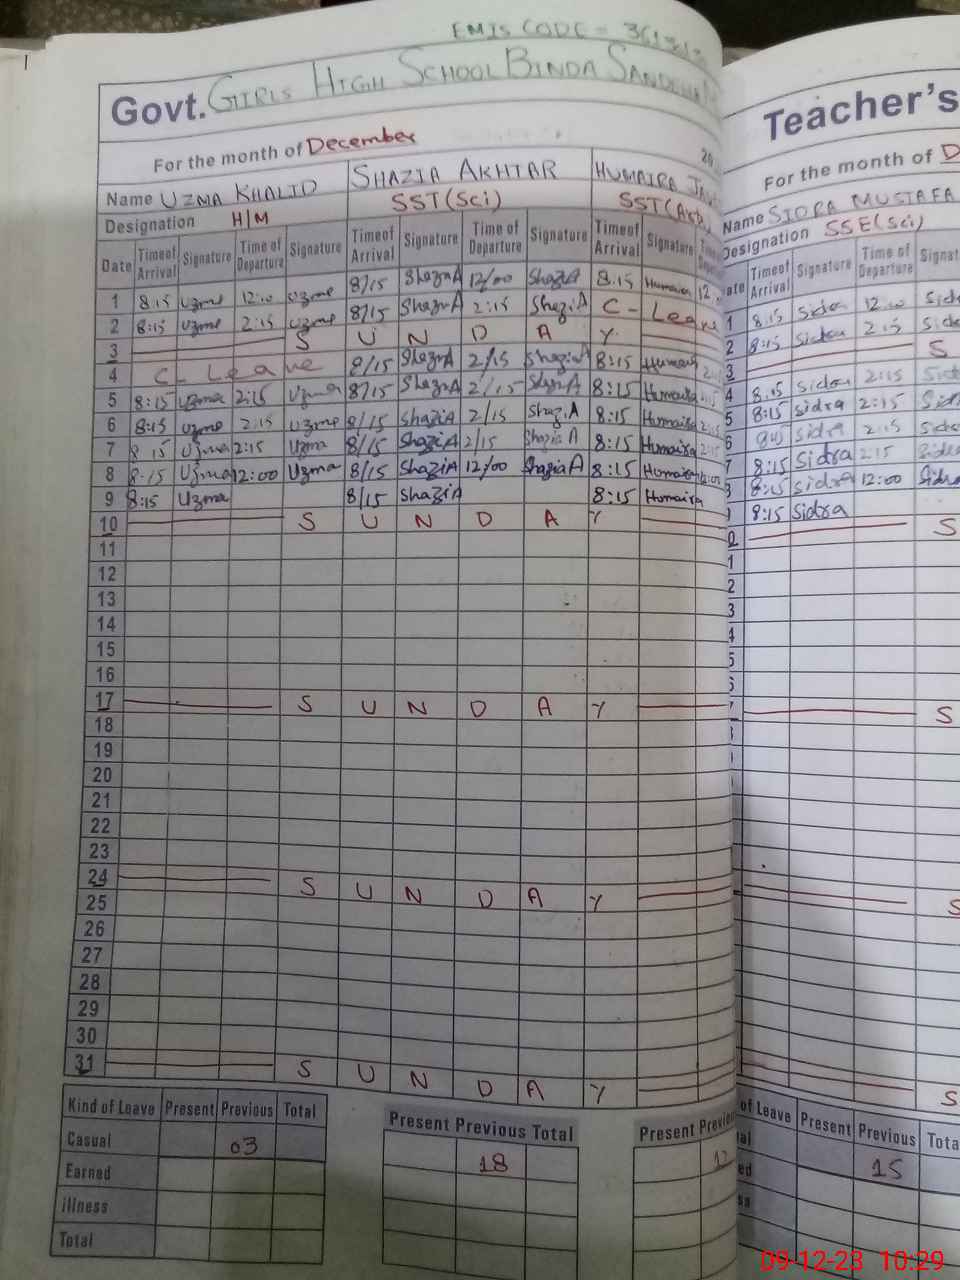 EMIS CODE =
Govt. GIRLS HIGH SCHOOL BINDA
Teacher's
For the month of December 20
For the month of D
Name UZMA KHALID SHAZIA AKHTAR HUMAIRA
Name SIDRA MUSTAFA
Designation H/M SST(Sci) SST(
Designation SSE(Sci)
Date Time of Arrival Signature Time of Departure Signature Time of Arrival Signature Time of Departure Signature Time of Arrival Signature
Time of Arrival Signature Time of Departure
1 8:15 uzme 12:00 uzme 8/15 ShaziA 12/00 ShaziA 8:15 Humaira 12
1 8:15 12:00
2 8:15 uzme 2:15 uzme 8/15 ShaziA 2:15 ShaziA C - Leave
2 8:15 2:15
3 S U N D A Y
S
4 C - Leave 8/15 ShaziA 2/15 ShaziA 8:15
4 8:15 2:15
5 8:15 uzma 2:15 uzma 8/15 ShaziA 2/15 ShaziA 8:15 Humaira
5 8:15 sidra 2:15
6 8:15 uzme 2:15 uzme 8/15 ShaziA 2/15 ShaziA 8:15 Humaira 2:15
6 sidra 2:15
7 8 15 Uzma 2:15 Uzma 8/15 ShaziA 2/15 Shazia A 8:15 Humaira 2:15
7 8:15 Sidra 2:15
8 8:15 Uzma 12:00 Uzma 8/15 ShaziA 12/00 ShaziaA 8:15 Humaira
8:15 sidra 12:00 Sidra
9 8:15 Uzma 8/15 ShaziA 8:15 Humaira
8:15 Sidra
10 S U N D A Y
S
11
12
13
14
15
16
17 S U N D A Y
S
18
19
20
21
22
23
24 S U N D A Y
S
25
26
27
28
29
30
31 S U N D A Y
S
Kind of Leave Present Previous Total
Present Previous Total
Present
of Leave Present Previous
Casual 03
18
15
Earned
illness
Total
09-12-23 10:29